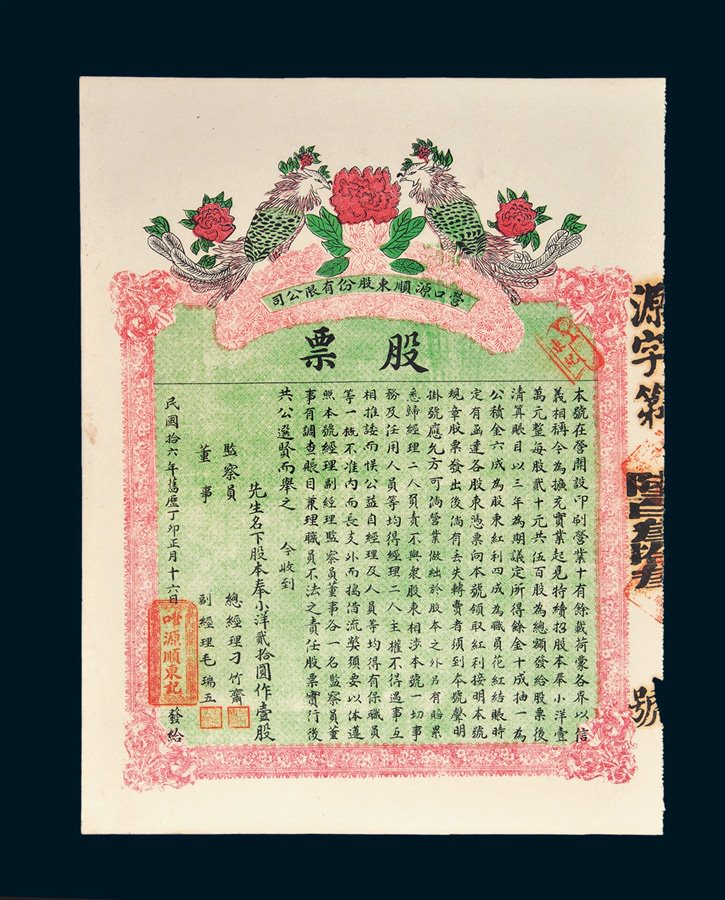 營口源順東股份有限公司
股票
本號在營開設印刷營業十有餘載荷蒙各界以信
義相稱今為擴充實業起見特續招股本奉小洋壹
萬元整每股貳十元共伍百股為總額發給股票後
清算賬目以三年為期議定所得餘金十成抽一為
公積金六成為股東紅利四成為職員花紅結賬時
定有函達各股東憑票向本號領取紅利接明本號
規章股票發出後倘有丟失轉賣者須到本號聲明
掛號應允方可倘營業做絀於股本之外另有賠累
悉歸經理二人負責不與眾股東相涉本號一切事
務及任用人員等均得經理二人主權不得遇事互
相推諉而悞公益自經理及人員等均得有保職員
等一概不准內而長支外而搗借流獘須要以体遵
照本號經理副經理監察員董事各一名監察員董
事有調查賬目兼理職員不法之責任股票實行後
共公選賢而舉之 今收到
先生名下股本奉小洋貳拾圓作壹股
監察員 總經理刁竹齋
董事 副經理毛瑞五
民國拾六年舊歷丁卯正月十六日 發給
源順東記
源字第
號